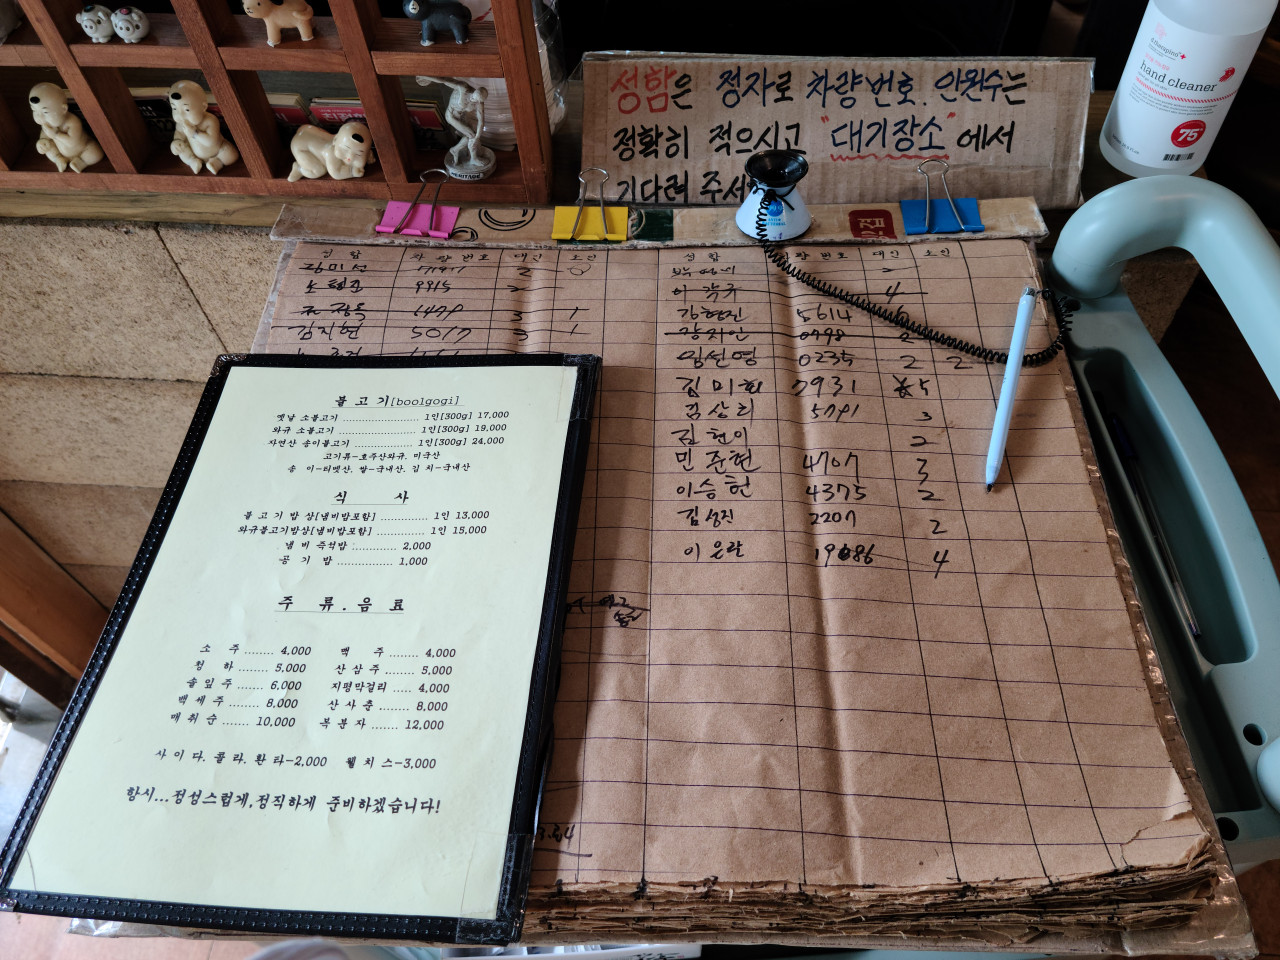 성함은 정자로 차량번호. 인원수는
정확히 적으시고 "대기장소"에서
기다려 주세
hand cleaner
75
성함 차량번호 대인 소인
김미선 2
9915
조장욱 1479 3 1
김지현 5017 3 1
성함 차량번호 대인 소인
4
김형진 5614
0798 2
임선영 0235 2 2
김미희 7931 5
김상리 5791 3
김현이 2
민준현 4707 3
이승현 4375 2
김성진 2207 2
이은락 19686 4
불고기[boolgogi]
옛날 소불고기 ................ 1인[300g] 17,000
와규 소불고기 ................ 1인[300g] 19,000
자연산 송이불고기 ................ 1인[300g] 24,000
고기류-호주산와규, 미국산
송 이-티벳산, 쌀-국내산, 김 치-국내산
식 사
불고기밥상[냄비밥포함] .............. 1인 13,000
와규불고기밥상[냄비밥포함] .............. 1인 15,000
냄비 즉석밥 ............ 2,000
공 기 밥 ................ 1,000
주 류 . 음 료
소 주 ........ 4,000 맥 주 ........ 4,000
청 하 ........ 5,000 산삼주 ........ 5,000
솔잎주 ........ 6,000 지평막걸리 ..... 4,000
백세주 ........ 8,000 산사춘 ........ 8,000
매취순 ....... 10,000 복분자 ........ 12,000
사이다. 콜라. 환타-2,000 웰치스-3,000
항시...정성스럽게,정직하게 준비하겠습니다!